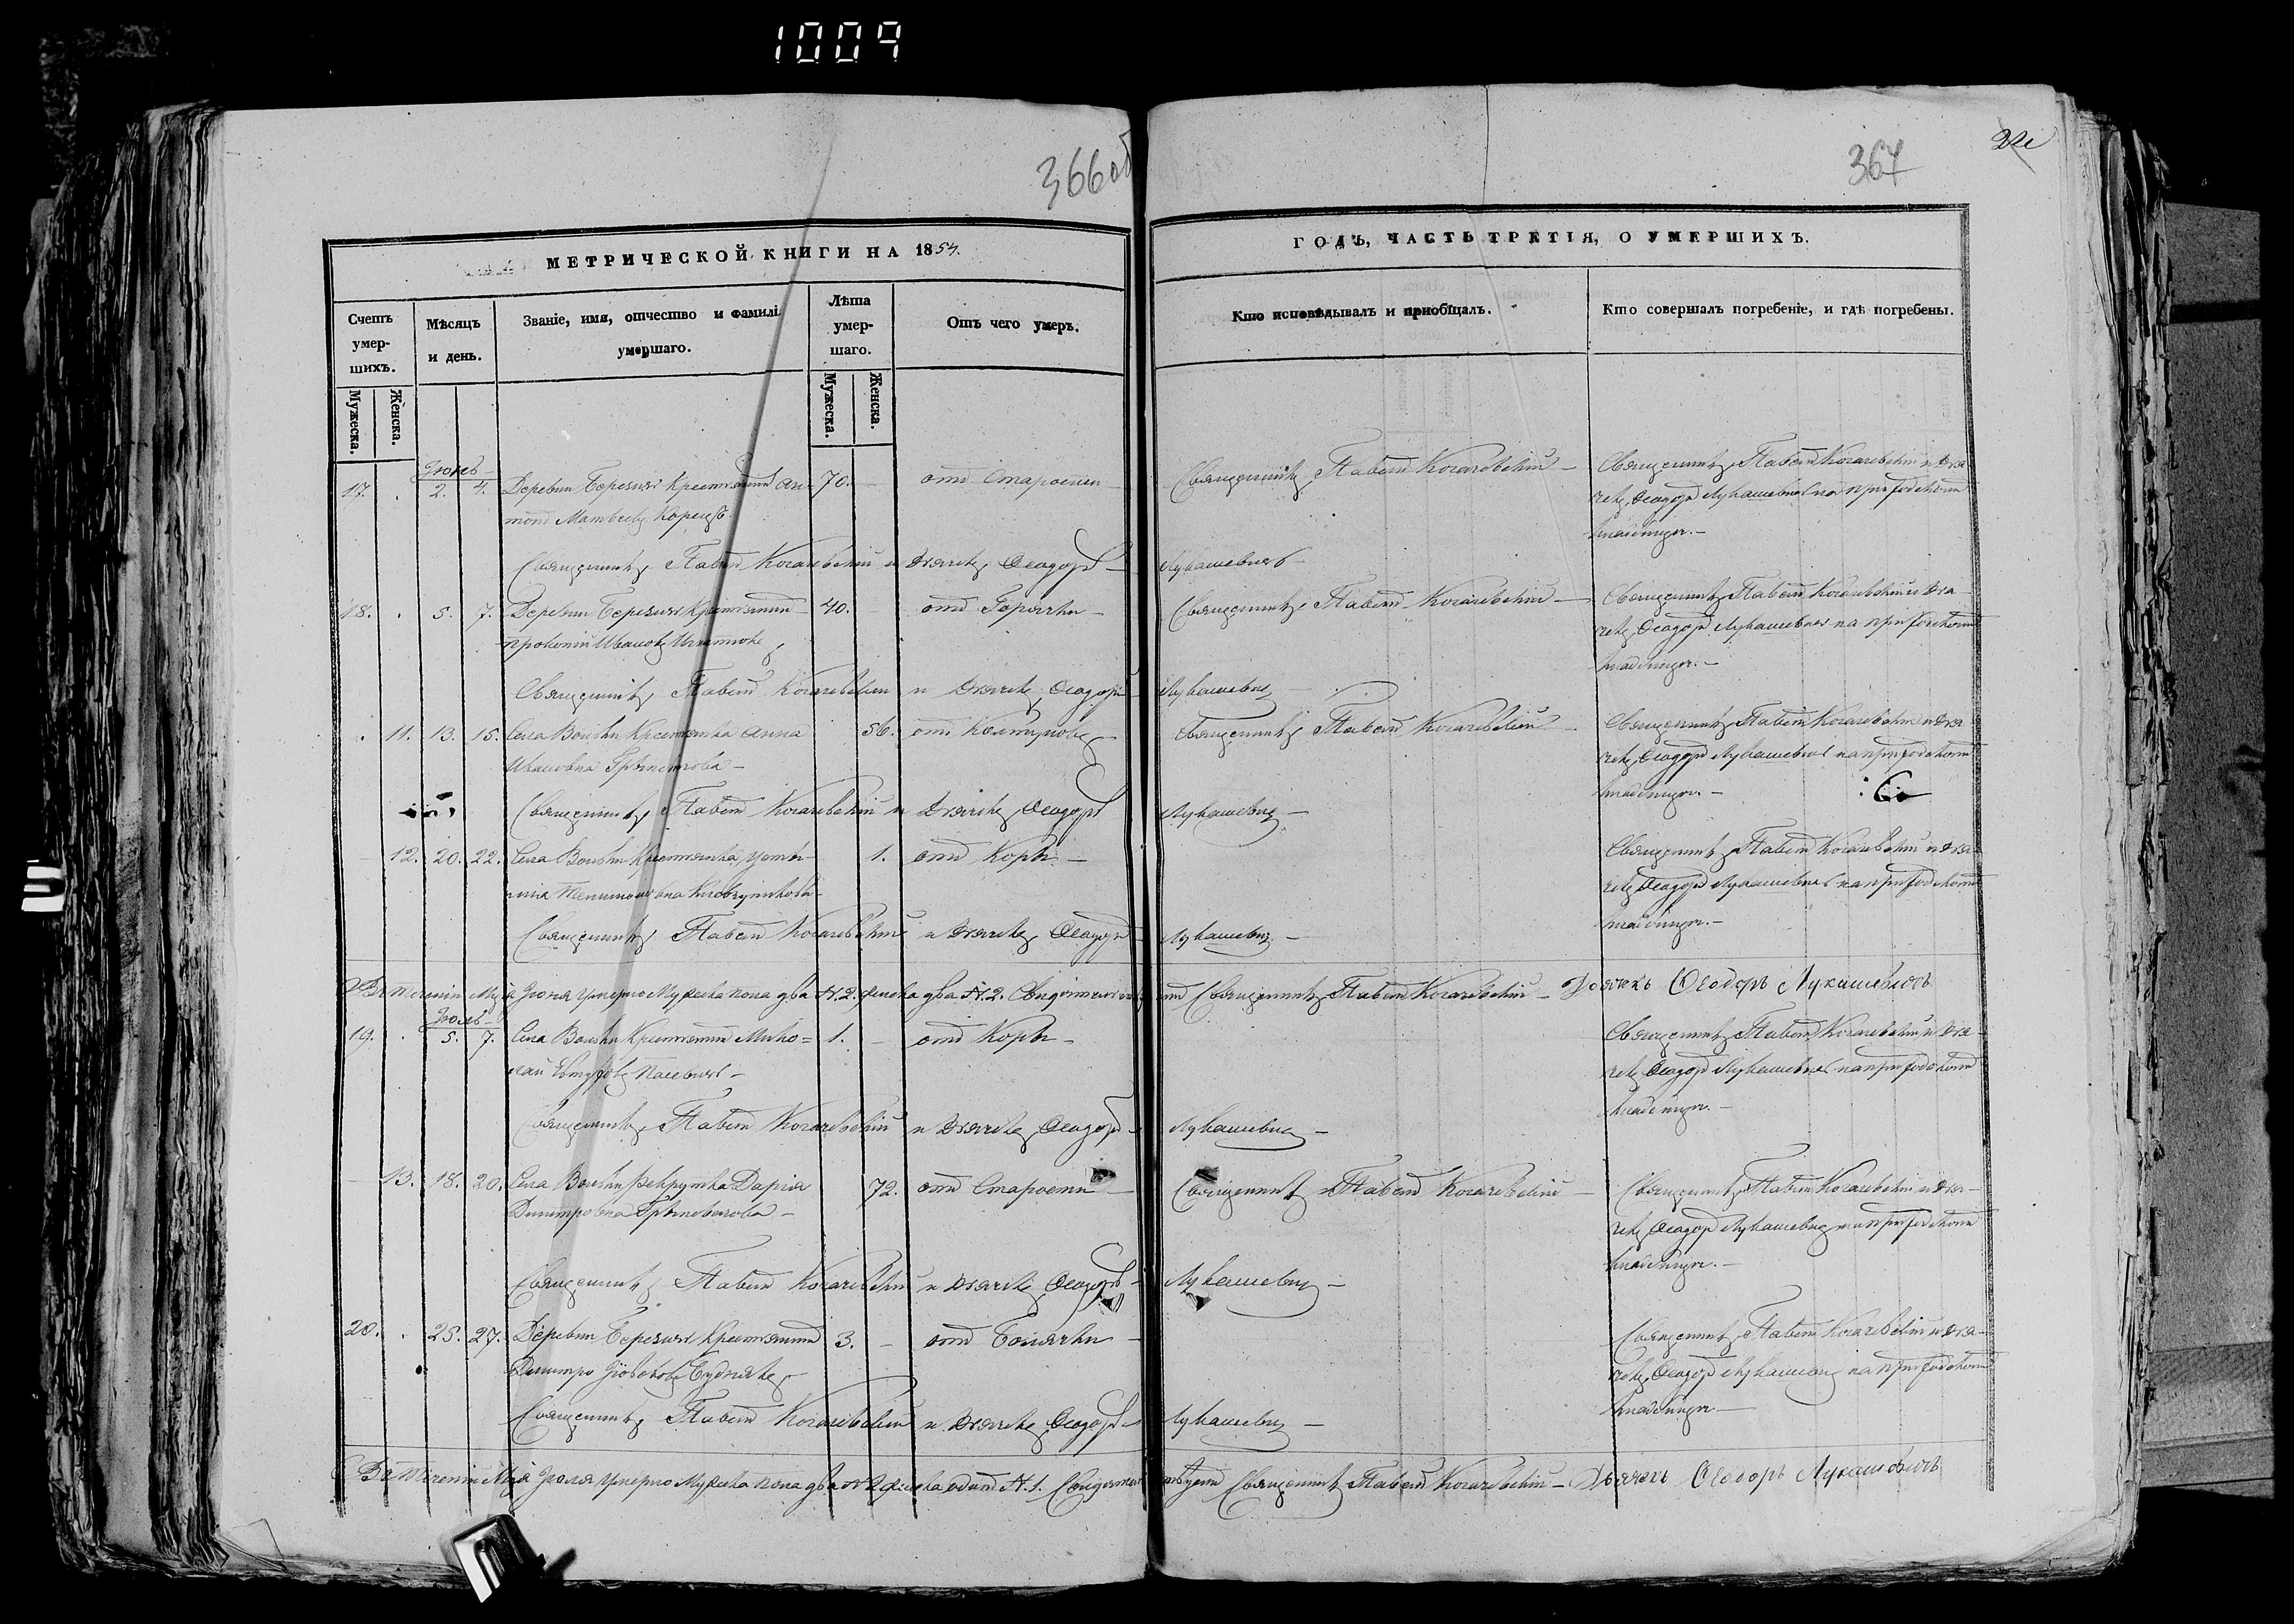 1009
366об
367
МЕТРИЧЕСКОЙ КНИГИ НА 1854.
ГОДЪ, ЧАСТЬ ТРЕТІЯ, О УМЕРШИХЪ.
Счетъ умер-шихъ.
Мужеска.
Женска.
Мѣсяцъ и день.
Званіе, имя, отчество и фамилі умершаго.
Лѣта умер-шаго.
Мужеска.
Женска.
Отъ чего умеръ.
Кто исповѣдывалъ и пріобщалъ.
Кто совершалъ погребеніе, и гдѣ погребены.
Іюнь
17. . 2. 4. Деревни Березичъ Крестьянинъ 70. — отъ Старости — Священникъ Павелъ Когачевскій — Священникъ Павелъ Когачевскій и Дья-
Матвеевъ Корецъ
чекъ Ѳеодоръ Лукашевичъ на приходскомъ
кладбищѣ. —
Священникъ Павелъ Когачевскій и Дьячекъ Ѳеодоръ — Лукашевичъ —
18. . 5. 7. Деревни Березичъ Крестьянинъ 40. отъ Горячки — Священникъ Павелъ Когачевскій — Священникъ Павелъ Когачевскій и Дья-
Прокопій Ивановъ Игнатюкъ
чекъ Ѳеодоръ Лукашевичъ на приходскомъ
кладбищѣ. —
Священникъ Павелъ Когачевскій и Дьячекъ Ѳеодоръ Лукашевичъ —
. 11. 13. 15. Села Крестьянка Анна 56. отъ Колтунова Священникъ Павелъ Когачевскій — Священникъ Павелъ Когачевскій и Дья
Ивановна
чекъ Ѳеодоръ Лукашевичъ на приходскомъ
кладбищѣ. —
Священникъ Павелъ Когачевскій и Дьячекъ Ѳеодоръ Лукашевичъ —
— 12. 20. 22. Села Крестьянка Усти- 1. отъ Кори — Священникъ Павелъ Когачевскій и Дья-
нія
чекъ Ѳеодоръ Лукашевичъ на приходскомъ
кладбищѣ. —
Священникъ Павелъ Когачевскій и Дьячекъ Ѳеодоръ Лукашевичъ —
Въ теченіи Мца Іюня Умерло Мужеска пола два N. 2. Женска два N. 2. Священникъ Павелъ Когачевскій — Дьячекъ Ѳеодоръ Лукашевичъ
Іюль
19. . 5. 7. Села Крестьянинъ Нико= 1. — отъ Кори — Священникъ Павелъ Когачевскій и Дья-
лай
чекъ Ѳеодоръ Лукашевичъ на приходскомъ
кладбищѣ. —
Священникъ Павелъ Когачевскій и Дьячекъ Ѳеодоръ — Лукашевичъ —
— 13. 18. 20. Села Рекрутка Дарія 72. отъ Старости — Священникъ Павелъ Когачевскій — Священникъ Павелъ Когачевскій и Дья-
Димитровна
чекъ Ѳеодоръ Лукашевичъ на приходскомъ
кладбищѣ. —
Священникъ Павелъ Когачевскій и Дьячекъ Ѳеодоръ — Лукашевичъ —
20. . 25. 27. Деревни Березичъ Крестьянинъ 3. — отъ Болячки — Священникъ Павелъ Когачевскій и Дья-
Димитро Іововъ Буднякъ
чекъ Ѳеодоръ Лукашевичъ на приходскомъ
кладбищѣ —
Священникъ Павелъ Когачевскій и Дьячекъ Ѳеодоръ — Лукашевичъ —
Въ теченіи Мца Іюля Умерло Мужеска пола два N 2 Женска одинъ N. 1. Священникъ Павелъ Когачевскій — Дьячекъ Ѳеодоръ Лукашевичъ